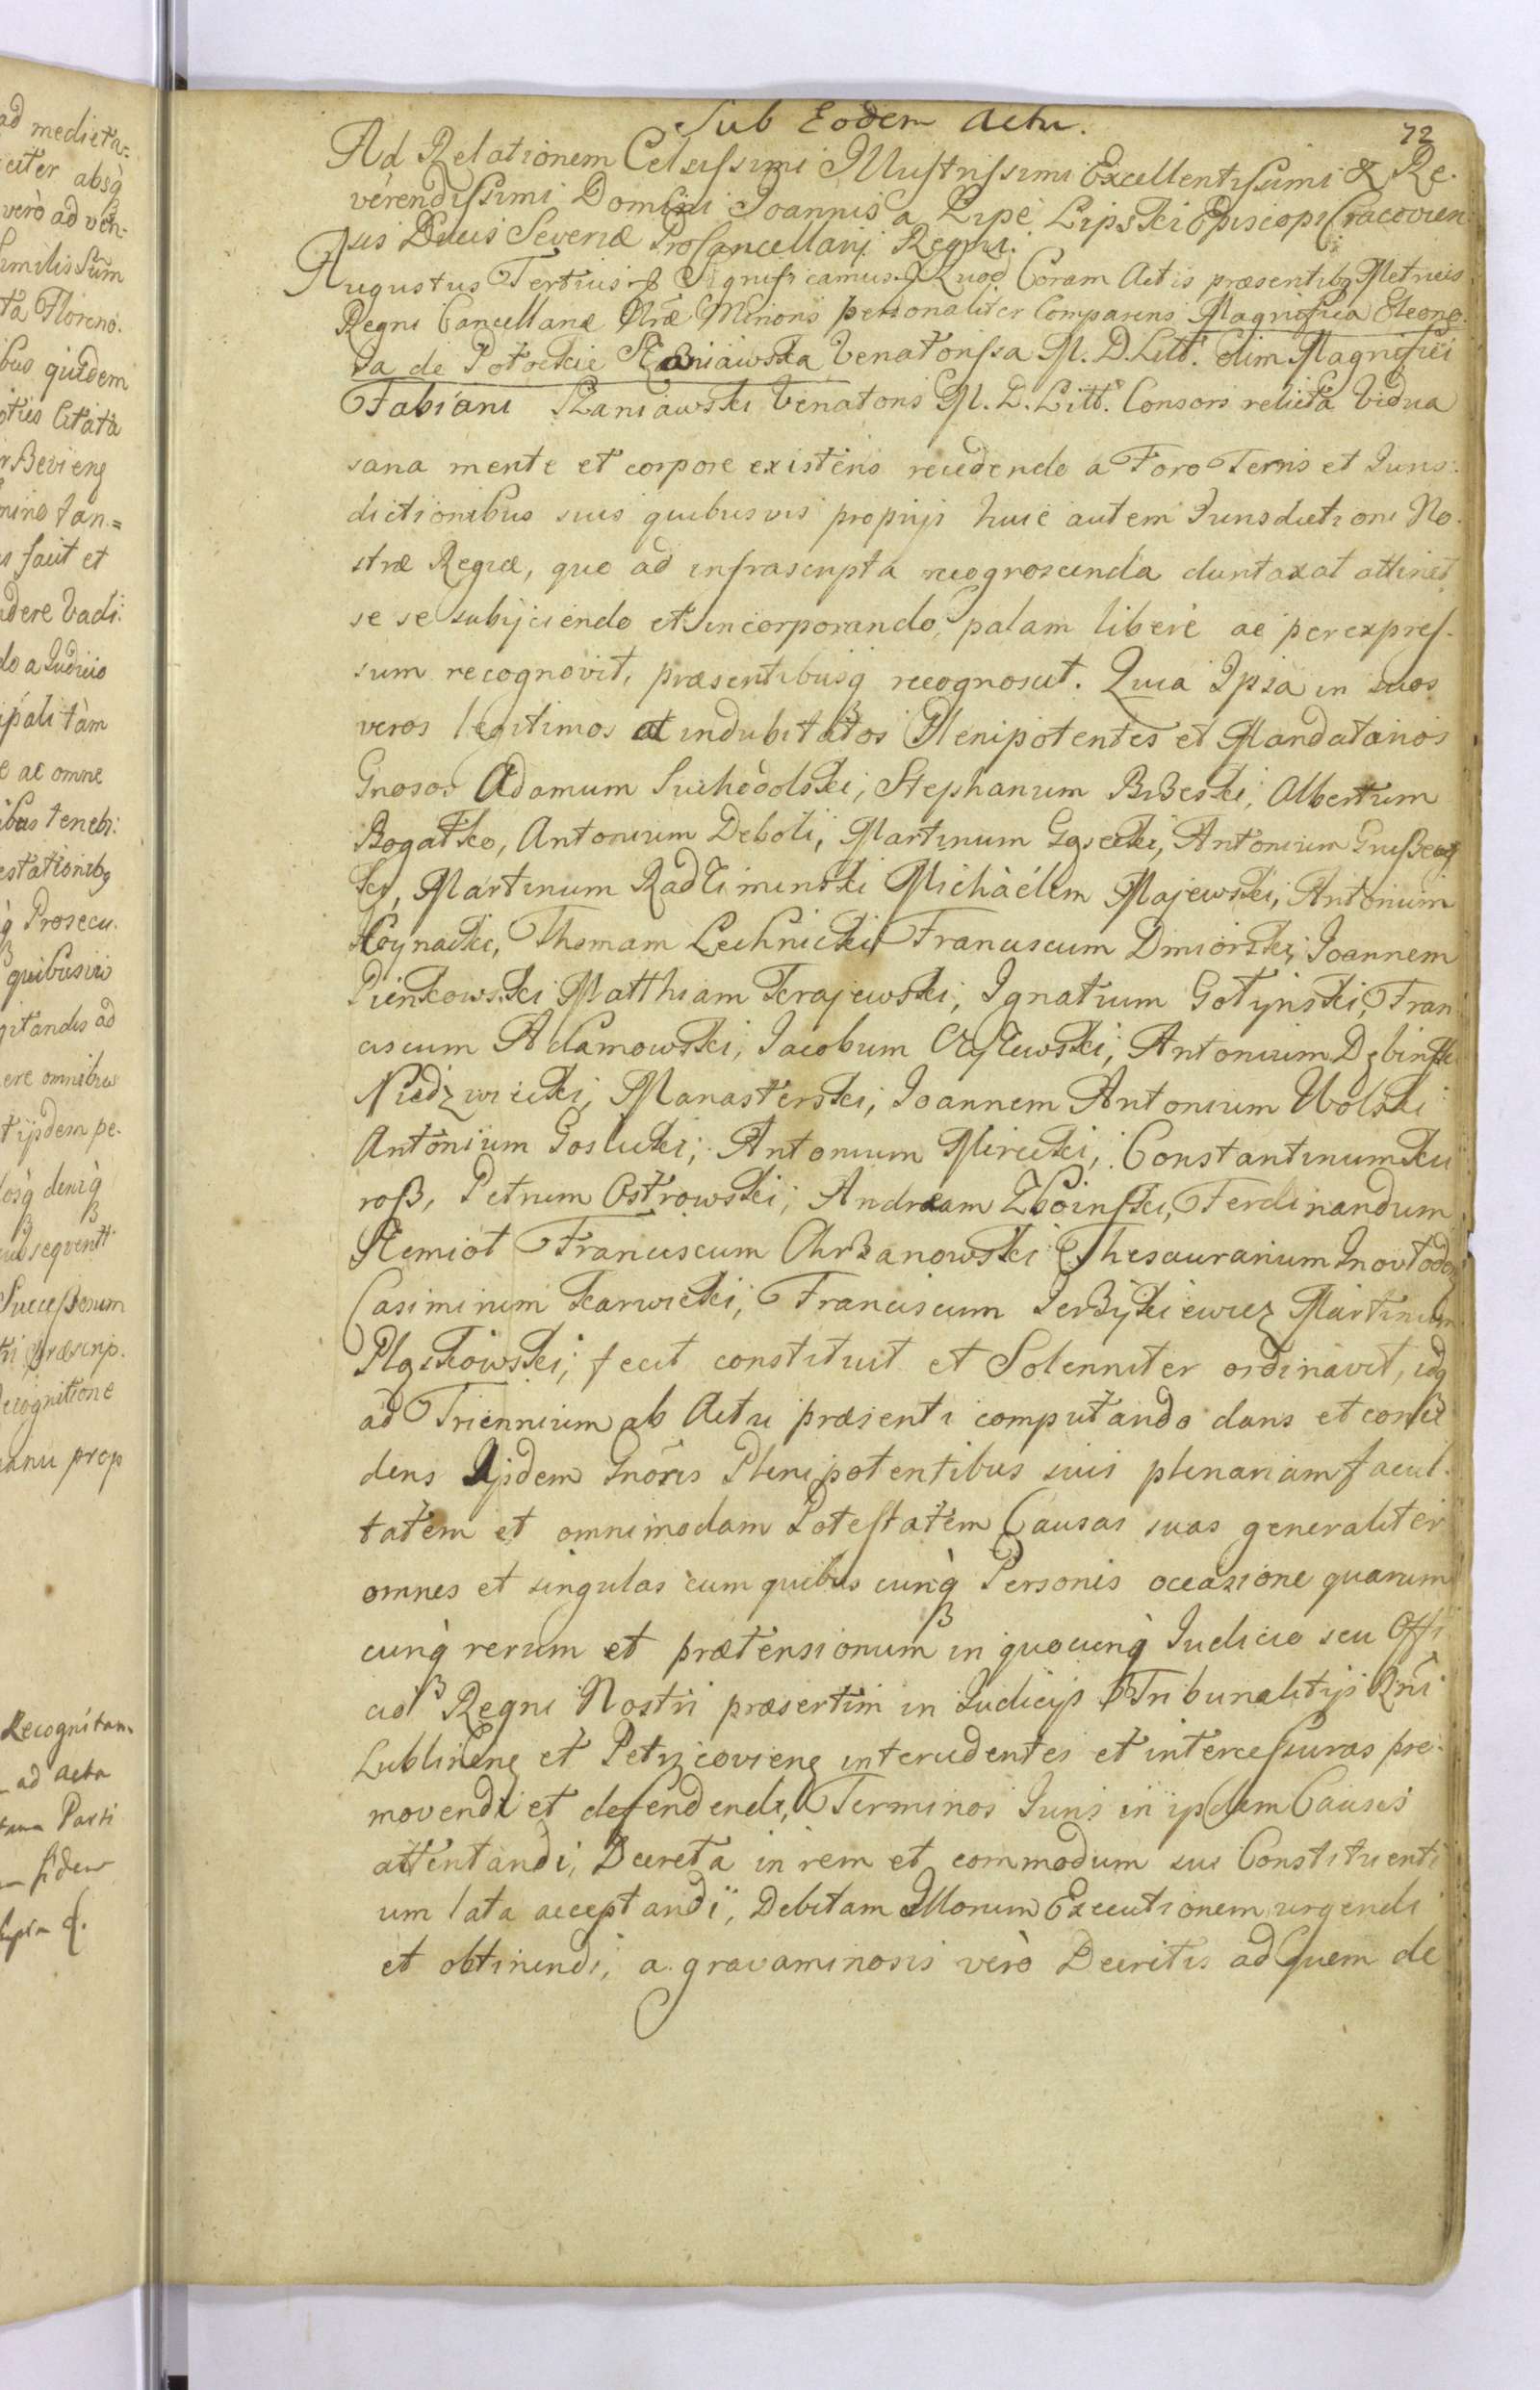 ad medieta=
citer absq
verò ad ven:
similis Sum
ta Floreno.
bus quidem
oties Citata
mino tan=
fecit et
ndere Vadi:
do a Judicio
ipali tàm
e ac omne
ibus teneb:
estationibq
q Prosecu.
quibusvis
gitandis ad
ere omnibus
t ijsdem pe.
osq deniq
subsequentt
Successorum
tri præscrip.
Recognitione
manu prop
Recognitam
ad acta
Parti
fidem
Sub Eodem Actu.
72
Ad Relationem Celsissimi Illustrissimi Excellentissimi & Re.
verendissimi Domini Joannis a Lipe Lipski Episcopi Cracovien
sis Ducis Severiæ ProCancellarij Regni.
Augustus Tertius & Significamus & Quod Coram Actis præsentibq Metrices
Regni Cancellariæ Nræ Minoris personaliter Comparens Magnifica Eleono.
ra de Potockie Szaniawska Venatorissa M. D. Litt. olim Magnifici
Fabiani Szaniawski Venatoris M. D. Litt. Consors relicta Vidua
sana mente et corpore existens recedendo a Foro Terris et Juris.
dictionibus suis quibusvis proprijs huic autem Jurisdictioni No.
stræ Regiæ, quo ad infrascripta recognoscenda duntaxat attinet
se se subijciendo et incorporando, palam liberè ac per expres.
sum recognovit, præsentibusq recognoscit. Quia Ipsa in suos
veros legitimos et indubitatos Plenipotentes et Mandatarios
Gnosos Adamum Suchodolski, Stephanum Brzeski, Albertum
Bogatko, Antonium Deboli, Martinum Gąsecki, Antonium
ski, Martinum Radziminski Michàélem Majewski, Antonium
Koynacki, Thomam Lechnicki Franciscum Dmiorski, Joannem
Pienkowski Matthiam Krajewski, Ignatium Gotynski, Fran
ciscum Adamowski, Jacobum Czyżewski, Antonium Dębinski
Niedzwiecki, Manasterski, Joannem Antonium Wolski
Antonium Goslicki, Antonium Mirecki, Constantinum Ku
rosz, Petrum Ostrowski, Andræam Zboinski, Ferdinandum
Stemiot Franciscum Chrzanowski Thesaurarium Inovłod
Casimirum Karwicki, Franciscum Jerzykiewicz Martinum
Pląskowski, fecit constituit et Solenniter ordinavit, idq
ad Triennium ab Actu præsenti computando dans et conce
dens Ijsdem Gnosis Plenipotentibus suis plenariam facul.
tatem et omnimodam Potestatem Causas suas generaliter
omnes et singulas cum quibus cunq Personis occasione quarum
cunq rerum et prætensionum in quocunq Judicio seu Offi
cio Regni Nostri præsertim in Judicijs Tribunalitijs Rni
Lublinens et Petricoviens intercedentes et intercessuras pro.
movendi et defendendi, Terminos Juris in ijsdem Causis
attentandi, Decreta in rem et commodum sui Constituenti
um lata acceptandi, Debitam Illorum Executionem urgendi
et obtinendi, a gravaminosis verò Decretis ad Quem de